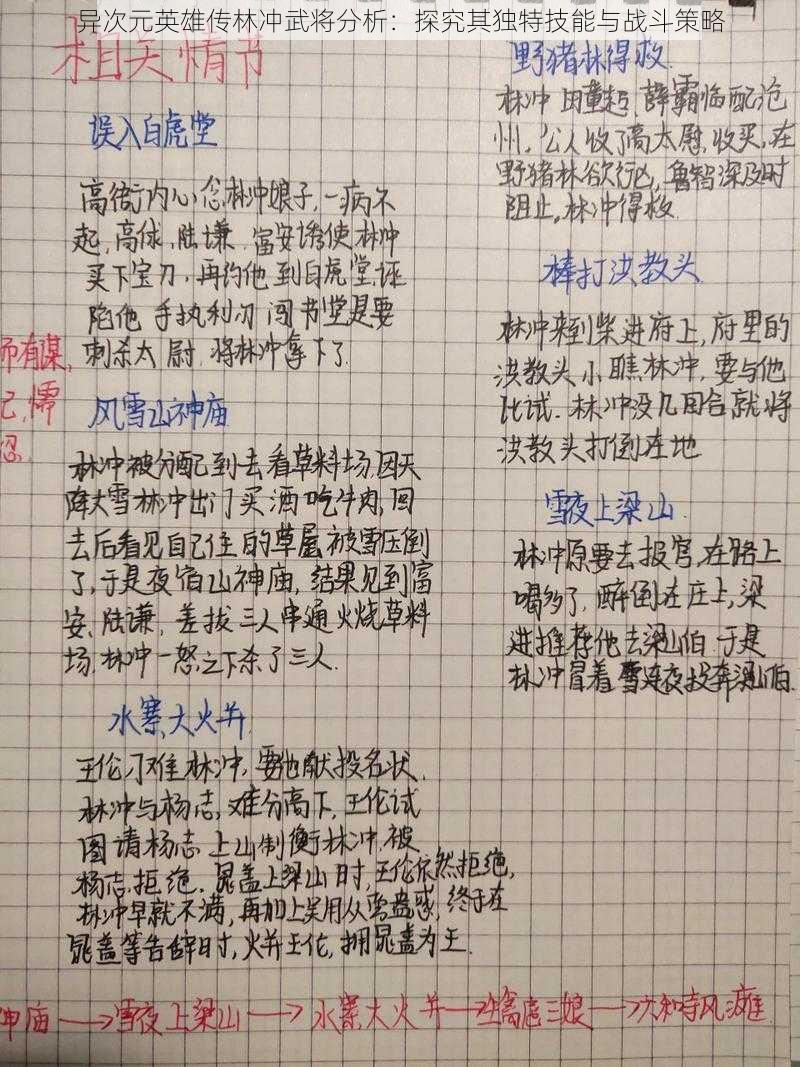 异次元英雄传林冲武将分析：探究其独特技能与战斗策略
相关情节
误入白虎堂
高衙内心念林冲娘子,一病不
起,高俅,陆谦.富安诱使林冲
买下宝刀,再约他到白虎堂,诬
陷他 手执利刃 闯节堂是要
刺杀太尉.将林冲拿下了.
风雪山神庙
林冲被分配到去看草料场.因天
降大雪林冲出门买酒吃牛肉,回
去后看见自己住的草屋被雪压倒
了,于是夜宿山神庙,结果见到富
安、陆谦,差拨三人串通火烧草料
场,林冲一怒之下杀了三人.
水寨大火并
王伦刁难林冲,要他献投名状.
林冲与杨志,难分高下,王伦试
图请杨志上山制衡林冲,被
杨志拒绝.晁盖上梁山时,王伦依然拒绝,
林冲早就不满,再加上吴用从旁蛊惑,终于在
晁盖等告辞时,火并王伦,拥晁盖为王.
野猪林得救
林冲 因董超 薛霸临配沧
州,公人收了高太尉,收买,在
野猪林欲行凶,鲁智深及时
阻止,林冲得救.
棒打洪教头
林冲来到柴进府上,府里的
洪教头小瞧林冲,要与他
比试.林冲没几回合就将
洪教头打倒在地
雪夜上梁山
林冲原要去报官,在路上
喝多了,醉倒在庄上,梁
进推荐他去梁山伯.于是
林冲冒着雪连夜投奔梁山伯.
有谋,
己,懦
忍.
神庙→雪夜上梁山→水寨大火并→生擒扈三娘→六和寺风瘫